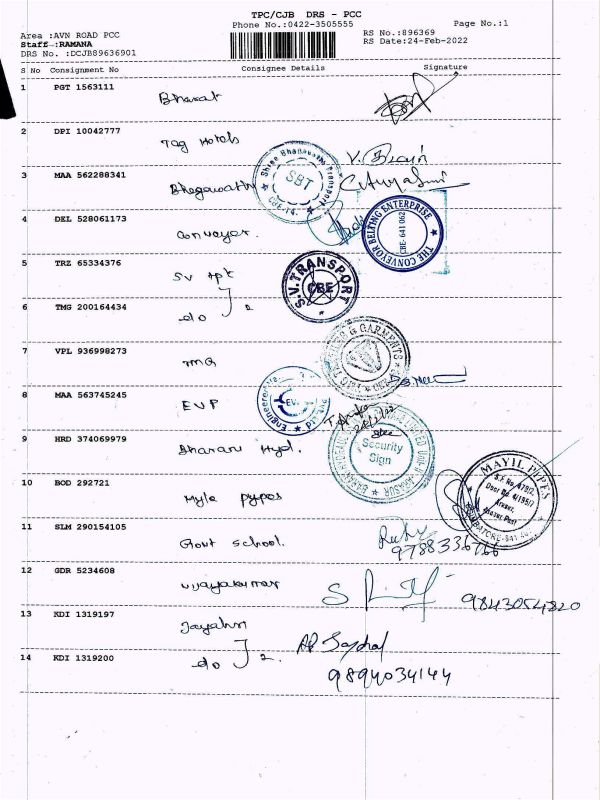 TPC/CJB DRS - PCC
Phone No.:0422-3505555
Page No.:1
Area :AVN ROAD PCC
RS No.:896369
Staff :RAMANA
RS Date:24-Feb-2022
DRS No. :DCJB89636901
S No Consignment No Consignee Details Signature
1 PGT 1563111 Bharat
2 DPI 10042777 Tag Hotels
3 MAA 562288341 Bhagavathi
SBT
CBE-14.
4 DEL 528061173 Conveyor.
THE CONVEYOR BELTING ENTERPRISE
CBE-641 062
5 TRZ 65334376 SV tpt
S.V.TRANSPORT
CBE
6 TMG 200164434 do 2
7 VPL 936998273 TMG
& GARMENTS
8 MAA 563745245 EVP
9 HRD 374069979 Bharani Hyd.
Security
Sign
10 BOD 292721 Myle pypes
MAYIL PIPES
S.F No. 478/2,
Door No. 4/195/7
Arasur,
11 SLM 290154105 Govt school.
9788336766
12 GDR 5234608 vijayakumar
9843054820
13 KDI 1319197
14 KDI 1319200 do 2.
9894034144